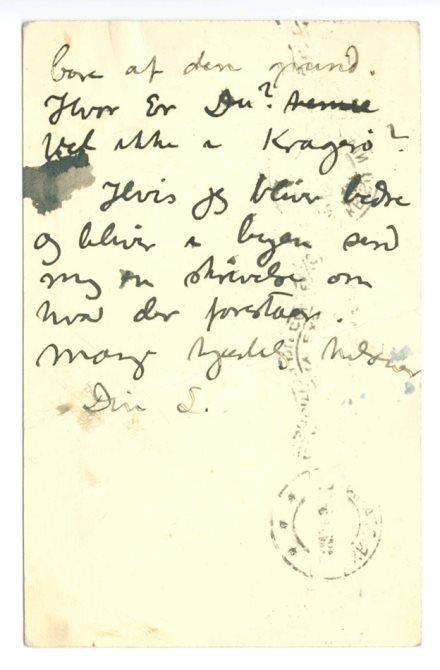 bare af den grund.
Hvor Er Du?
Vel ikke i Kragerø?
Hvis jeg bliver bedre
og bliver i byen send
mig en skrivelse om
hvad der forestaar.
Mange hjertelig hilsner
Din L.